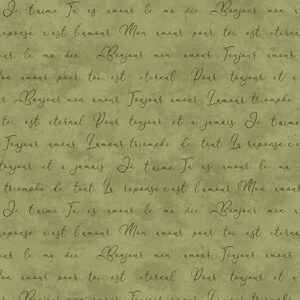 Je t'aime Tu es amour le ma vie Bonjour mon
reponse c'est l'amour Mon amour pour toi est e
le ma vie Bonjour mon amour Toujour amour
on amour pour toi est eternal Pour toujour et a
Bonjour mon amour Toujour amour L'amour triomphe
toi est eternal Pour toujour et a jamais Je t'aime
Toujour amour L'amour triomphe de tout La reponse c'e
toujour et a jamais Je t'aime Tu es amour le ma
triomphe de tout La reponse c'est l'amour Mon amour
Je t'aime Tu es amour le ma vie Bonjour mon
reponse c'est l'amour Mon amour pour toi est
le ma vie Bonjour mon amour Toujour amour
on amour pour toi est eternal Pour toujour et a